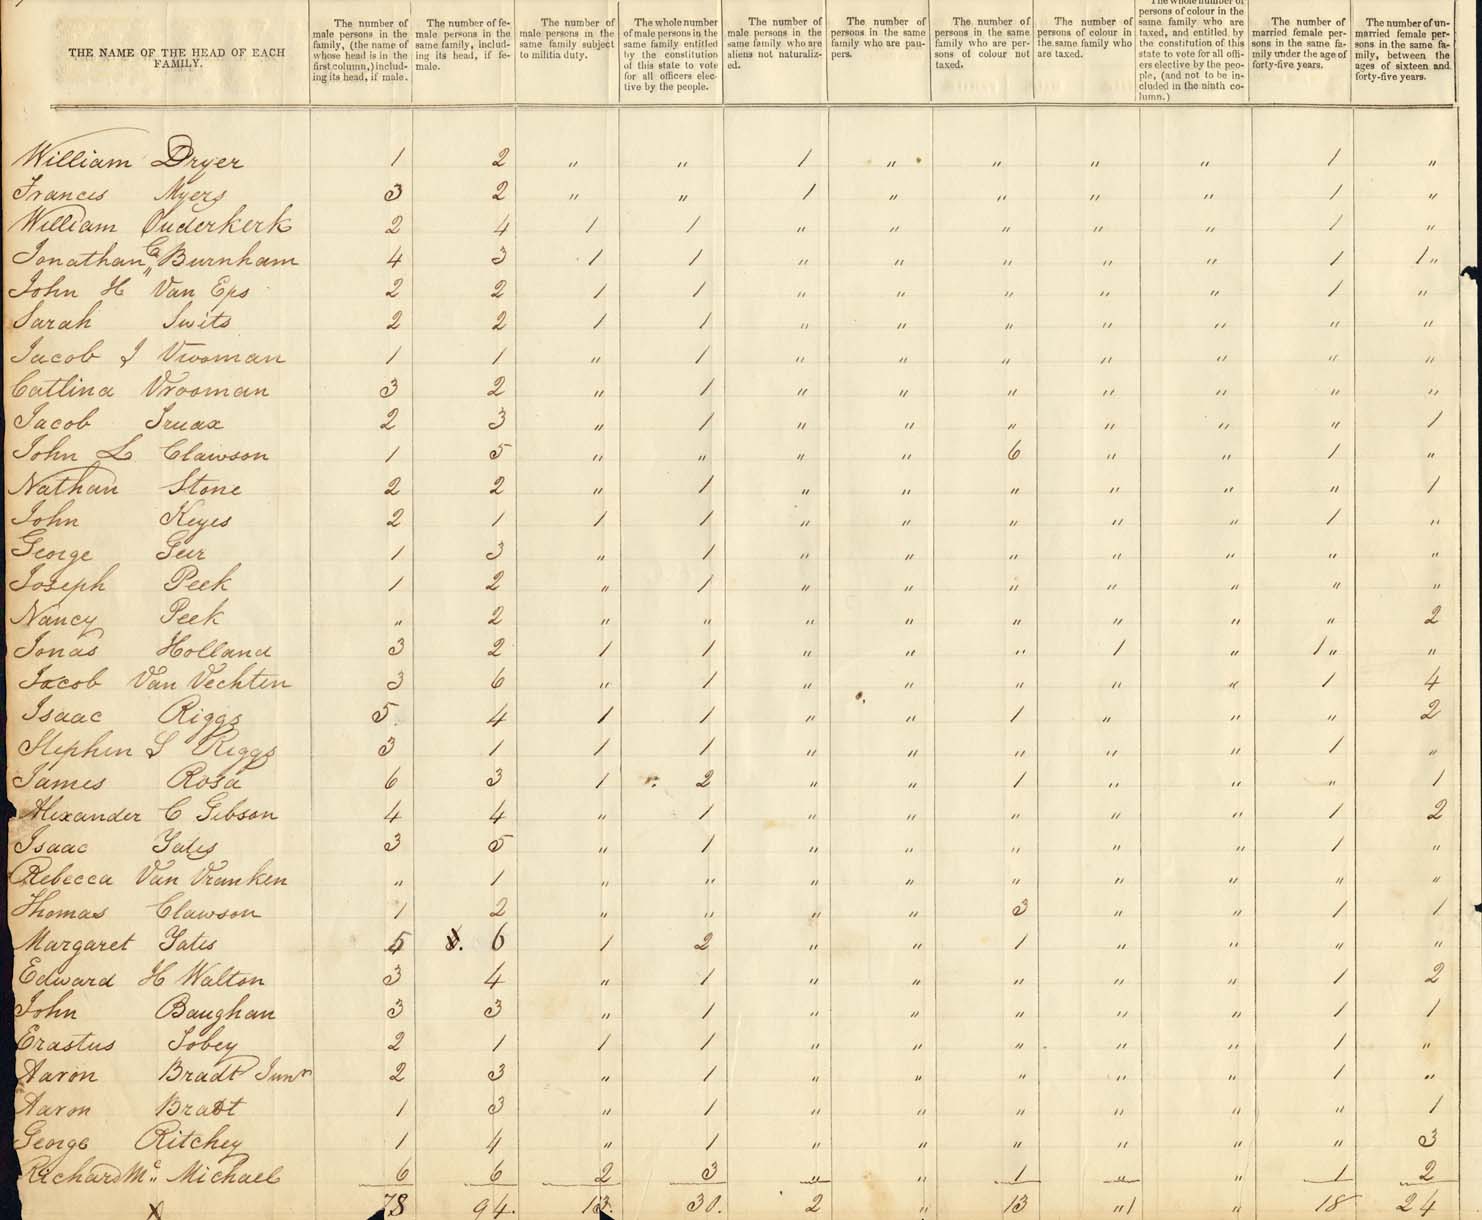 THE NAME OF THE HEAD OF EACH FAMILY.
The number of male persons in the family, (the name of whose head is in the first column,) including its head, if male.
The number of female persons in the same family, including its head, if female.
The number of male persons in the same family subject to militia duty.
The whole number of male persons in the same family entitled by the constitution of this state to vote for all officers elective by the people.
The number of male persons in the same family who are aliens not naturalized.
The number of persons in the same family who are paupers.
The number of persons in the same family who are persons of colour not taxed.
The number of persons of colour in the same family who are taxed.
The whole number of persons of colour in the same family who are taxed, and entitled by the constitution of this state to vote for all officers elective by the people, (and not to be included in the ninth column.)
The number of married female persons in the same family under the age of forty-five years.
The number of unmarried female persons in the same family, between the ages of sixteen and forty-five years.
William Dryer 1 2 " " 1 " " " " 1 "
Francis Myers 3 2 " " 1 " " " " 1 "
William Ouderkerk 2 4 1 1 " " " " " 1 "
Jonathan C, Burnham 4 3 1 1 " " " " " 1 1"
John H Van Eps 2 2 1 1 " " " " " 1 "
Sarah Swits 2 2 1 1 " " " " " " "
Jacob I Vrooman 1 1 " 1 " " " " " " "
Catlina Vrooman 3 2 " 1 " " " " " " "
Jacob Truax 2 3 " 1 " " " " " " 1
John L Clawson 1 5 " " " " 6 " " 1 "
Nathan Stone 2 2 " 1 " " " " " " 1
John Keyes 2 1 1 1 " " " " " 1 "
George Geir 1 3 " 1 " " " " " " "
Joseph Peek 1 2 " 1 " " " " " " "
Nancy Peek " 2 " " " " " " " " 2
Jonas Holland 3 2 1 1 " " " 1 " 1" "
Jacob Van Vechten 3 6 " 1 " " " " " 1 4
Isaac Riggs 5. 4 1 1 " " 1 " " " 2
Stephen S Riggs 3 1 1 1 " " " " " 1 "
James Rosa 6 3 1 2 " " 1 " " " 1
Alexander C Gibson 4 4 " 1 " " " " " 1 2
Isaac Yates 3 5 " 1 " " " " " 1 "
Rebecca Van Vranken " 1 " " " " " " " " "
Thomas Clawson 1 2 " " " " 3 " " 1 1
Margaret Yates 5 6 1 2 " " 1 " " " "
Edward H Walton 3 4 " 1 " " " " " 1 2
John Baughan 3 3 " 1 " " " " " 1 1
Erastus Tobey 2 1 1 1 " " " " " 1 "
Aaron Bradt Junr 2 3 " 1 " " " " " 1 "
Aaron Bradt 1 3 " 1 " " " " " " 1
George Ritchey 1 4 " 1 " " " " " " 3
Richard Mc Michael 6 6 2 3 " " 1 " " 1 2
78 94. 13. 30. 2 " 13 "1 " 18 24